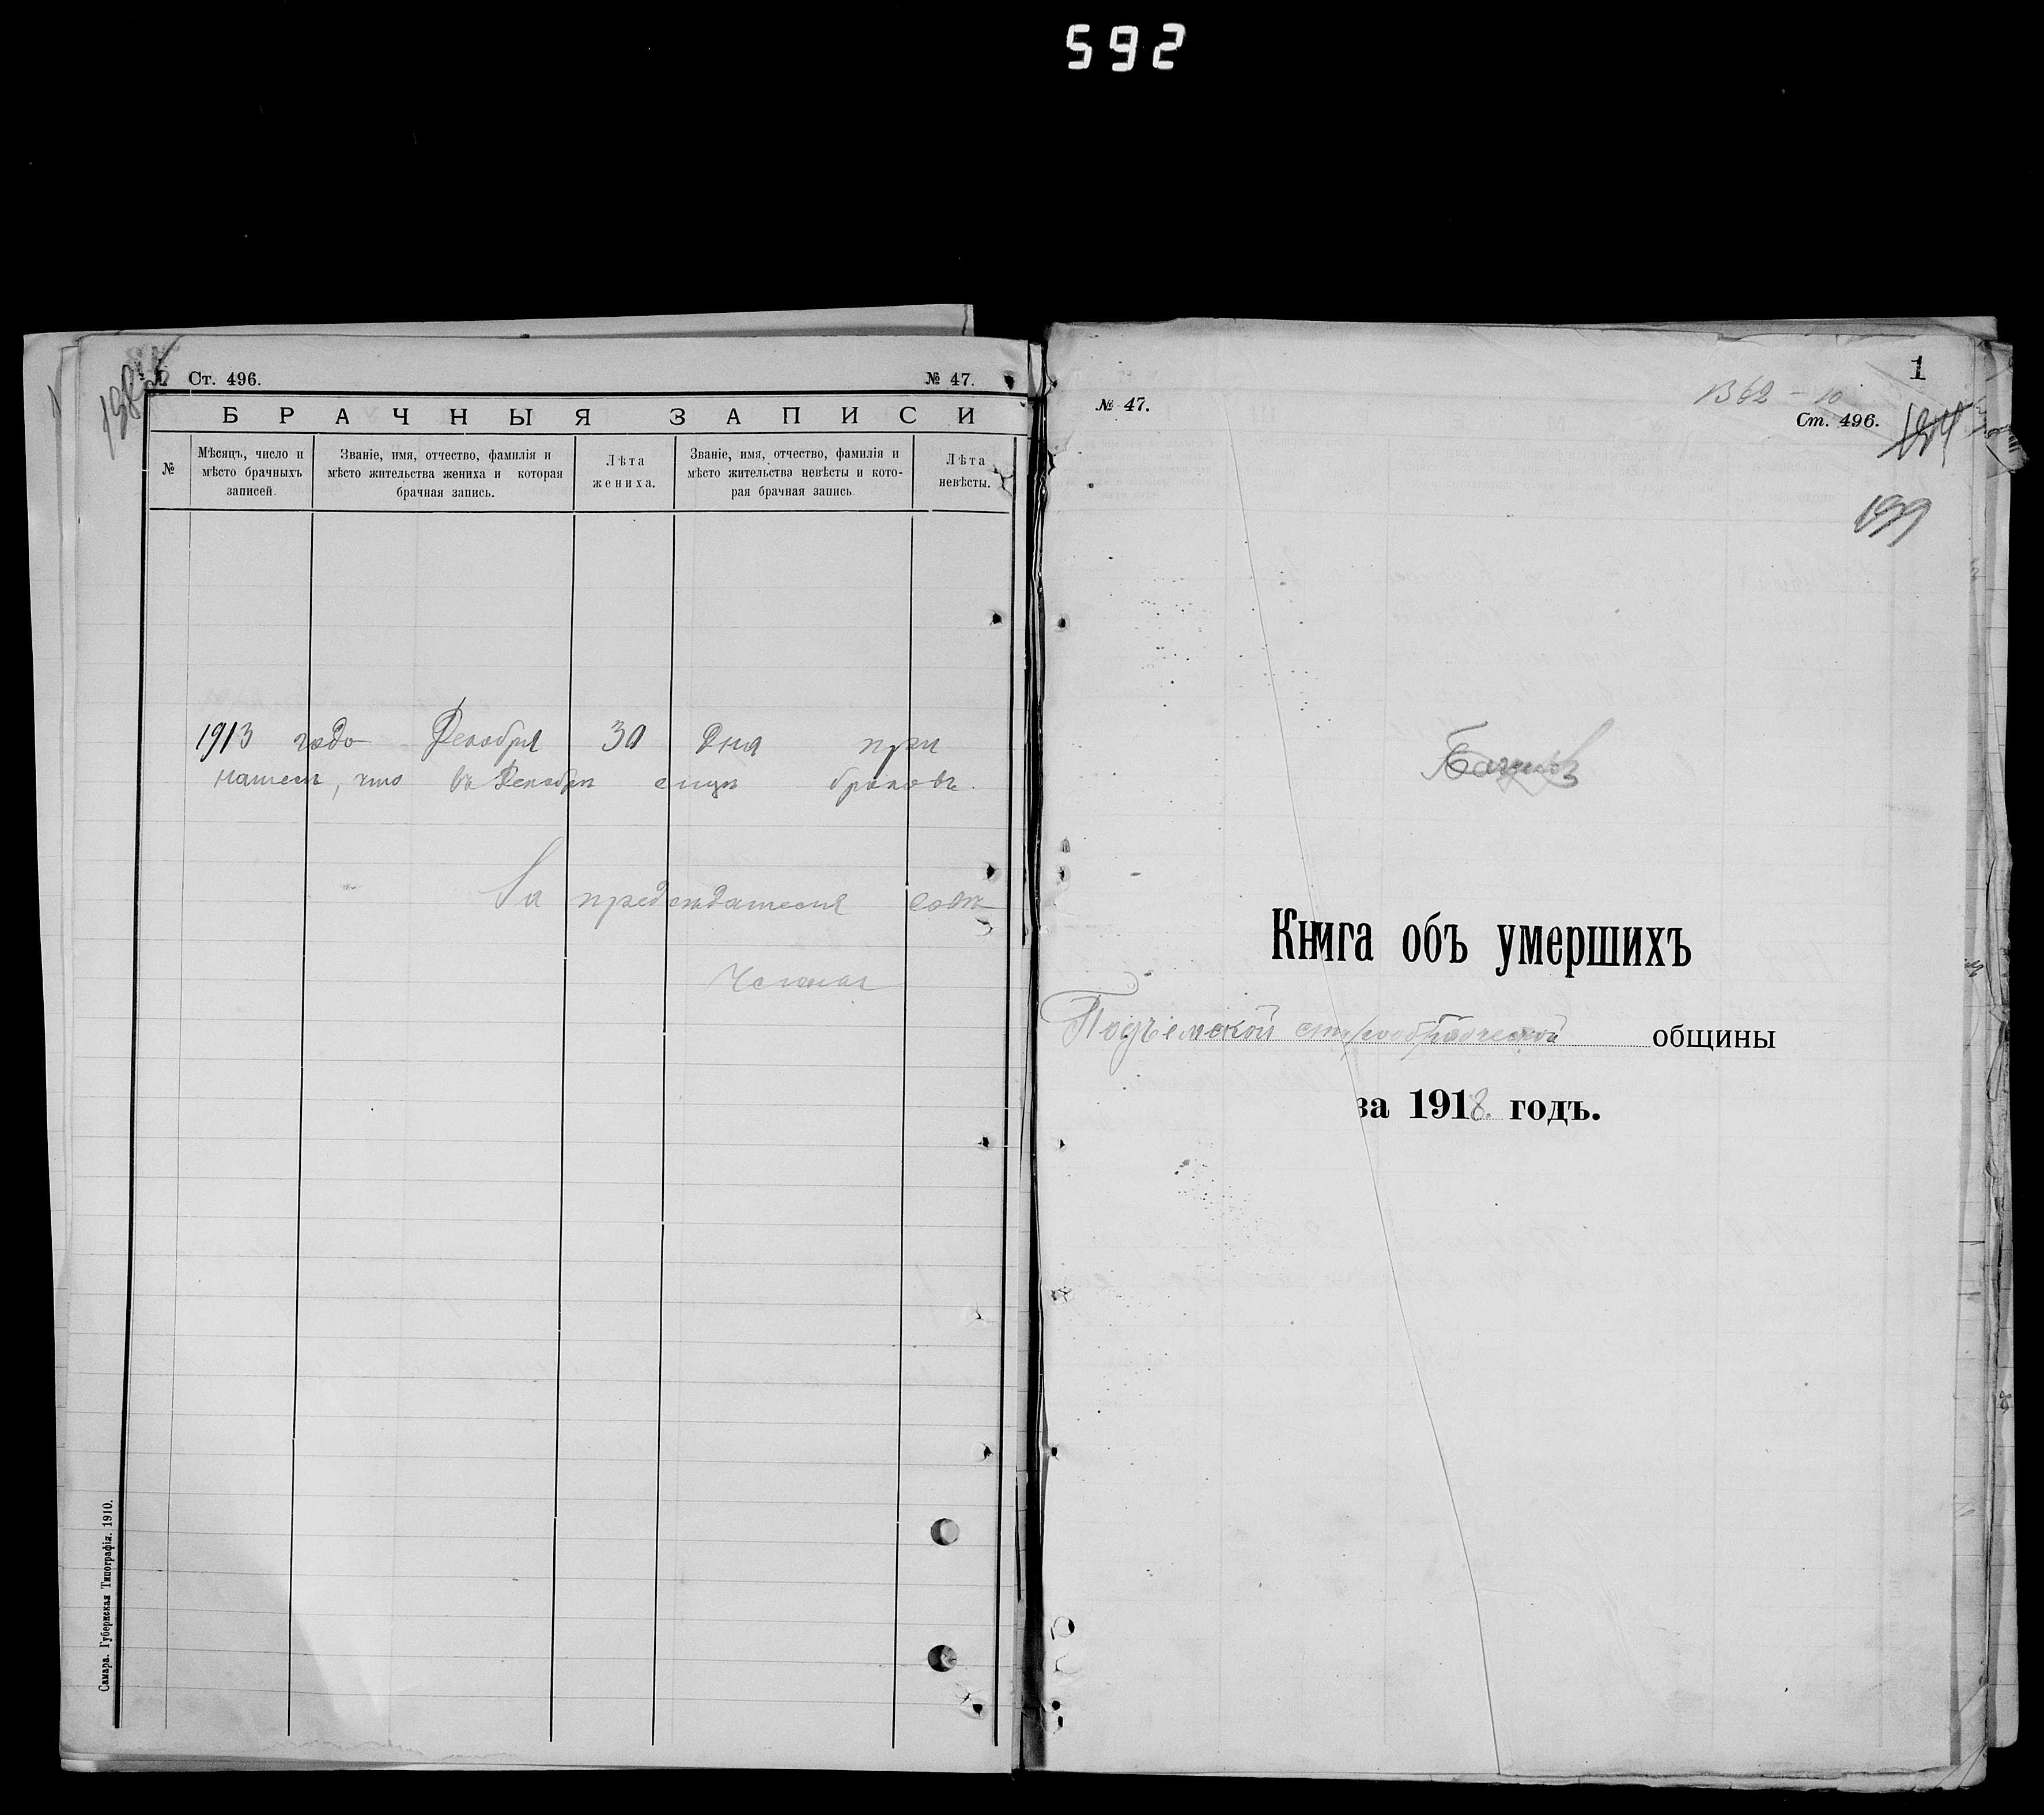 592
Ст. 496.
№ 47.
БРАЧНЫЯ ЗАПИСИ
№
Мѣсяцъ, число и мѣсто брачныхъ записей.
Званіе, имя, отчество, фамилія и мѣсто жительства жениха и которая брачная запись.
Лѣта жениха.
Званіе, имя, отчество, фамилія и мѣсто жительства невѣсты и которая брачная запись.
Лѣта невѣсты.
1913 годо Декабря 30 дня при
что въ Декабрѣ браковъ.
За председателя
Самара. Губернская Типографія. 1910.
1
№ 47.
1362 - 10
Ст. 496.
199
Книга объ умершихъ
Подъемской старообрядческой общины
за 1918. годъ.